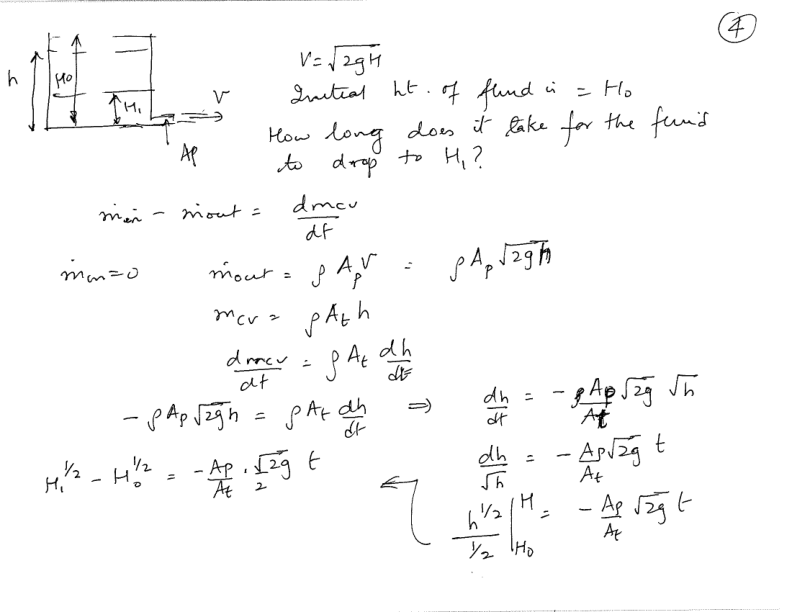 4
h
H₀
H₁
V
Ap
V = √2gH
Initial ht. of fluid is = H₀
How long does it take for the fluid
to drop to H₁?
ṁin - ṁout = dmcv/dt
ṁin = 0 ṁout = ρ Ap V = ρ Ap √2gh
mcv = ρ At h
dmcv/dt = ρ At dh/dt
- ρ Ap √2gh = ρ At dh/dt ⇒ dh/dt = - ρ Ap/At √2g √h
dh/√h = - Ap√2g/At t
h^1/2 / 1/2 |H H₀ = - Ap/At √2g t
H₁^1/2 - H₀^1/2 = - Ap/At . √2g/2 t